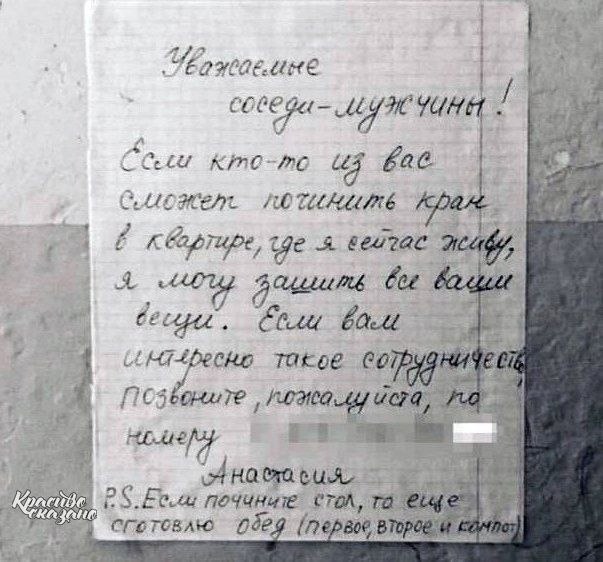 Уважаемые
соседи-мужчины!
Если кто-то из вас
сможет починить кран
в квартире, где я сейчас живу,
я могу зашить все ваши
вещи. Если вам
интересно такое сотрудничеств
позвоните, пожалуйста, по
номеру
Анастасия
P.S. Если почините стол, то еще
сготовлю обед (первое, второе и компот)
Красиво
сказано